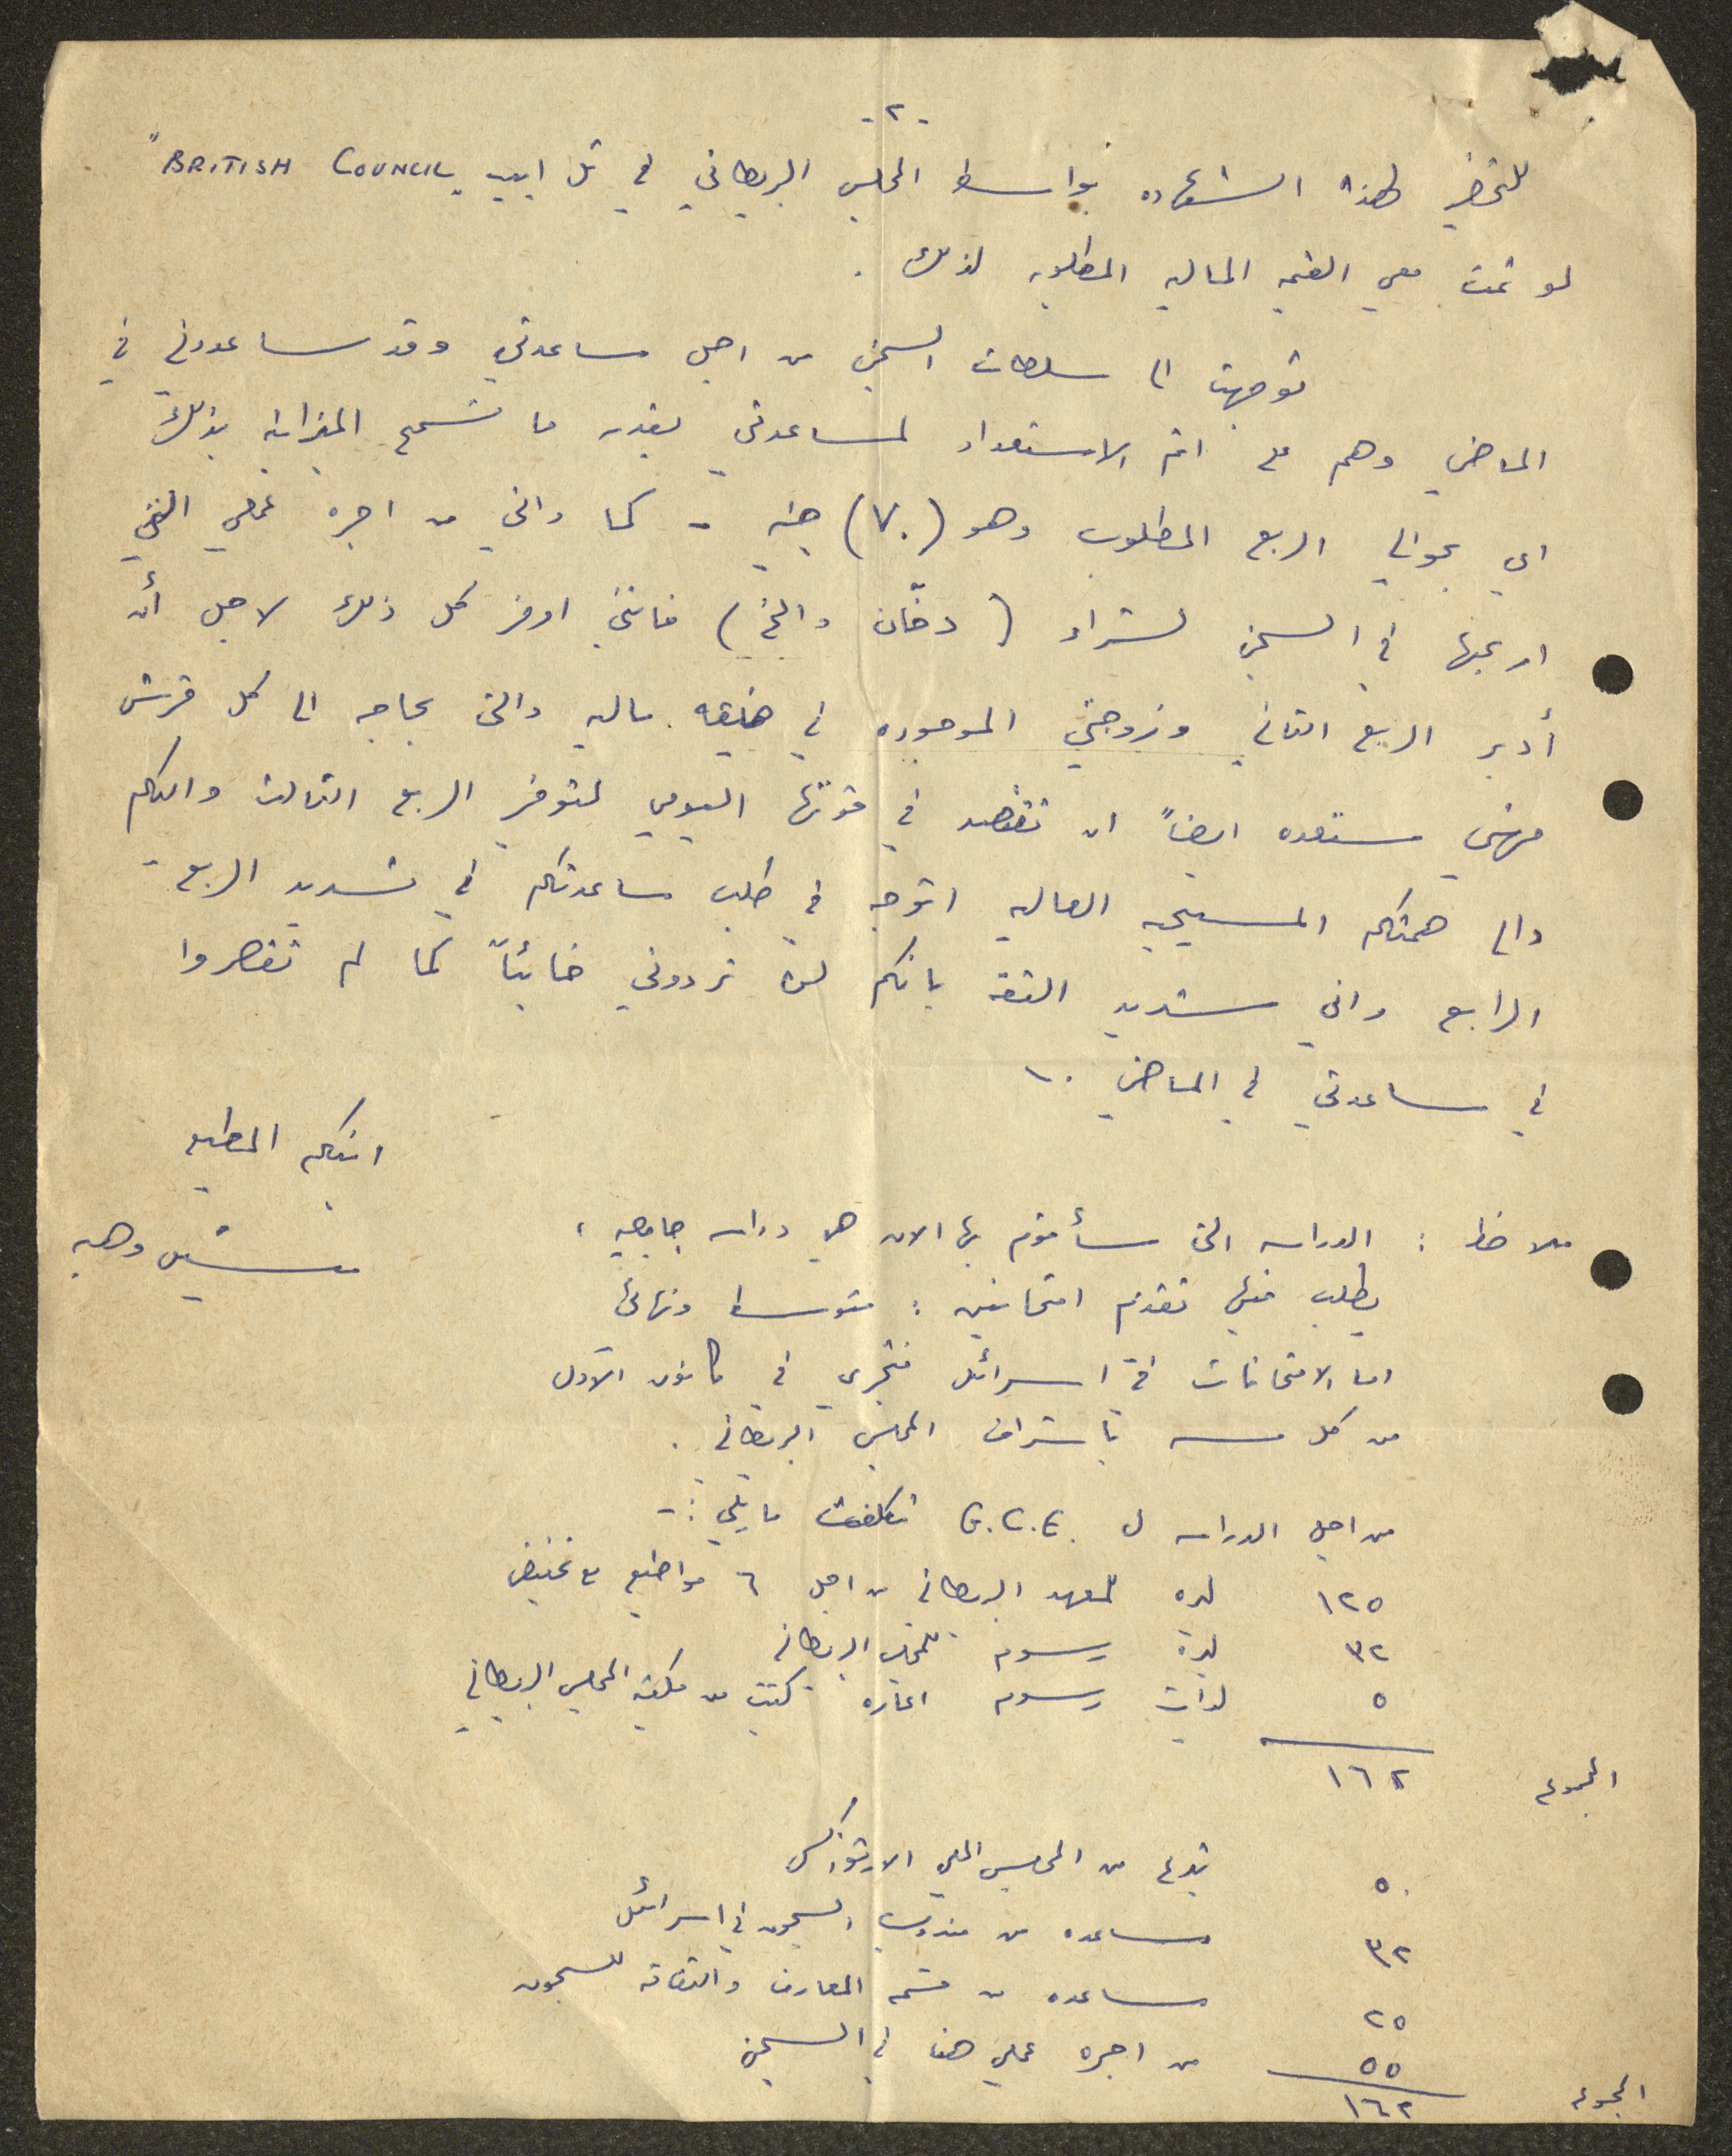 -٢-
للتحضير لهذه الشهاده بواسطة المجلس البريطاني في تل ابيب "BRITISH COUNCIL"
لو تمت معي القيمه الماليه المطلوبه لذلك .
توجهت الى سلطات السجن من اجل مساعدتي وقد ساعدوني في
الماضي وهم على اتم الاستعداد لمساعدتي بقدر ما تسمح الميزانيه بذلك
اي بحوالي الربع المطلوب وهو (٧٠) جنيه - كما واني من اجرة عملي التي
اربحها في السجن لشراء (دخّان والخ) فانني اوفر كل ذلك لاجل أن
أدبر الربع الثاني وزوجتي الموجوده في ضيقه ماليه والتي بحاجه الى كل قرش
فهي مستعده ايضاً ان تقتصد في قوتها اليومي لتوفير الربع الثالث واليكم
والى همتكم المسيحيه العاليه اتوجه في طلب مساعدتكم في تسديد الربع -
الرابع واني شديد الثقة بانكم لن تردوني خائباً كما لم تقصروا
في مساعدتي في الماضي .
ابنكم المطيع
وهبه
ملاحظه : الدراسه التي سأقوم بها الان هي دراسه جامعيه ،
يطلب فيها تقديم امتحانين : متوسط ونهائي
اما الامتحانات في اسرائيل فتجري في كانون الاول
من كل سنه باشراف المجلس البريطاني .
من اجل الدراسه ل G.C.E. تكلفت ما يلي :-
١٢٥ ليره للمعهد البريطاني من اجل ٦ مواضيع مع تخفيض
٣٢ ليره رسوم للمجلس البريطاني
٥ ليرات رسوم اعارة كتب من مكتبة المجلس البريطاني
المجموع ١٦٢
٥٠ تبرع من المجلس الملي الارثوذكسي
٣٢ مساعده من مندوب السجون في اسرائيل
٢٥ مساعده من قسم المعارف والثقافة للسجون
٥٥ من اجرة عملي هنا في السجن
المجموع ١٦٢